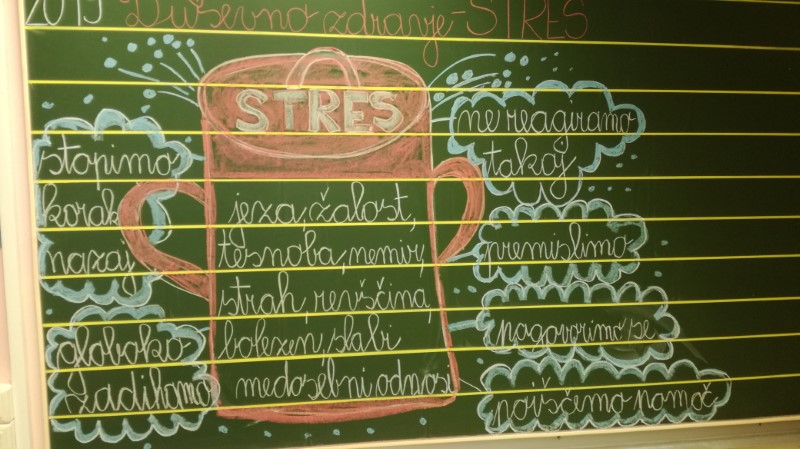 2019 Duševno zdravje-STRES
STRES
stopimo
korak
nazaj
globoko
zadihamo
jeza, žalost,
tesnoba, nemir,
strah, revščina,
bolezen, slabi
medosebni odnosi
ne reagiramo
takoj
premislimo
pogovorimo se
poiščemo pomoč